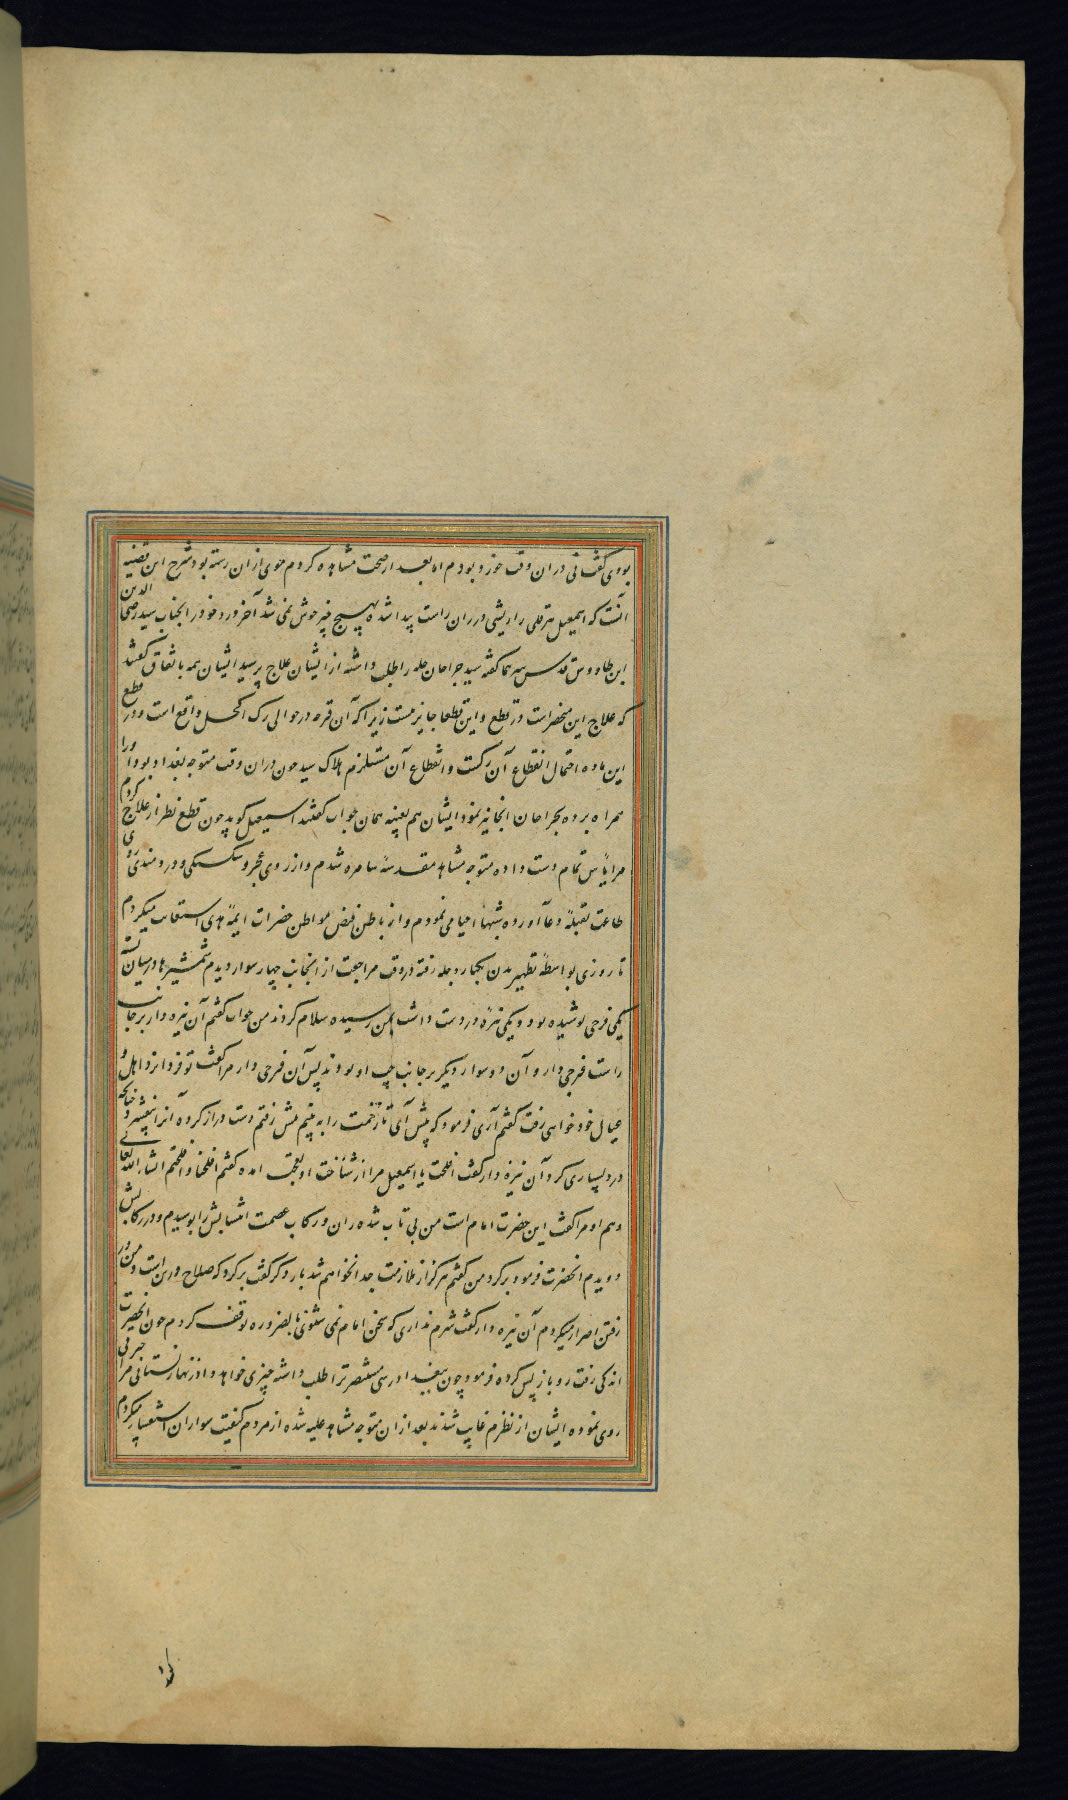 بودی گفت نی در ان وقت خورد بودم اما بعد از صحت مشاهده کردم موی از ان رسته بود شرح این قضیه
آنست که اسمعیل هرقلی را ریشی در ران راست پیدا شده بهیچ چیز خوش نمی شد آخر درد خود را بجناب سید رضی الدین
ابن طاووس قدس سرهما گفته سید جراحان حله را طلب داشته از ایشان علاج پرسید ایشان همه باتفاق گفتند
که علاج این منحصر است در قطع و این قطعا جایز نیست زیرا که آن قرحه در حوالی رک اکحل واقع است و در قطع
این ماده احتمال انقطاع آن رگست و انقطاع آن مستلزم هلاک سید چون در ان وقت متوجه بغداد بود او را
همراه برده بجراحان آنجا نیز نمود ایشان هم بعینه همان جواب گفتند اسمعیل گوید چون قطع نظر از علاج کردم
مرا یأس تمام دست داده متوجه مشاهد مقدسه سامره شدم و از روی عجز و شکستگی و دردمندی روی
طاعت بقبلهٔ دعا آورده شبها احیا می نمودم و از باطن فیض مواطن حضرات ایمهٔ هدی استعانت میکردم
تا روزی بواسطهٔ تطهیر بدن بکنار دجله رفته در وقت مراجعت از آنجانب چهار سوار دیدم شمشیرها در میان بسته
یکی فرجی پوشیده بود و یکی نیزه در دست داشت بمن رسیده سلام کردند من جواب گفتم آن نیزه دار بر جانب
راست فرجی دار و آن دو سوار دیگر بر جانب چپ او بودند پس آن فرجی دار مرا گفت تو فردا نزد اهل و
عیال خود خواهی رفت گفتم آری فرمود که پیش آی تا زخمت را به بینم پیش رفتم دست دراز کرده آنرا بیفشرد چنانکه
درد بسیاری کرد آن نیزه دار گفت افلحت یا اسمعیل مرا از شناخت او تعجب آمده گفتم افلحنا و افلحتم انشاء الله تعالی
وهم او مرا گفت این حضرت امام است من بی تاب شده ران و رکاب عصمت انتسابش را بوسیدم و در رکابش
دویدم انحضرت فرمود برگرد من گفتم هرگز از ملازمت جدا نخواهم شد بار دگر گفت برگرد که صلاح درین است و من در
رفتن اصرار میکردم آن نیزه دار گفت شرم نداری که سخن امام نمی شنوی بالضروره توقف کردم چون انحضرت
اندکی رفت رو باز پس کرده فرمود چون ببغداد رسی مستنصر ترا طلب داشته چیزی خواهد داد زنهار نستانی مرا حیرتی
روی نموده ایشان از نظرم غایب شدند بعد از ان متوجه مشاهد علیه شده از مردم کیفیت سواران استفسار میکردم